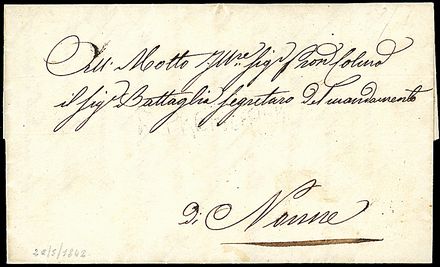 All: Molto Illre: Sigr Pron Colmo
il Sigr Battaglia Segretaro del mandamento
di Nonne
28/5/1842